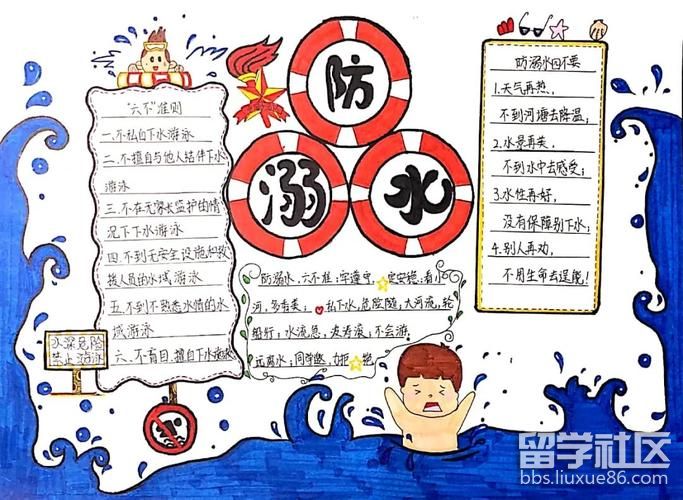 防
溺 水
"六不"准则
一.不私自下水游泳
二.不擅自与他人结伴下水
游泳
三.不在无家长监护的情
况下下水游泳
四.不到无安全设施和救
援人员的水域游泳
五.不到不熟悉水情的水
域游泳
六.不盲目、擅自下水
水深危险
禁止游泳
防溺水、六不准,牢遵守、定安稳,看小
河,多有美;私下水,危险随,大河流,轮
船行;水流急,涛滚,不会游,
远离水;同学邀,拒绝
防溺水四不要
1.天气再热,
不到河塘去降温;
2.水景再美,
不到水中去感受;
3.水性再好,
没有保障别下水;
4.别人再劝,
不用生命去逞能!
留学社区
bbs.liuxue86.com